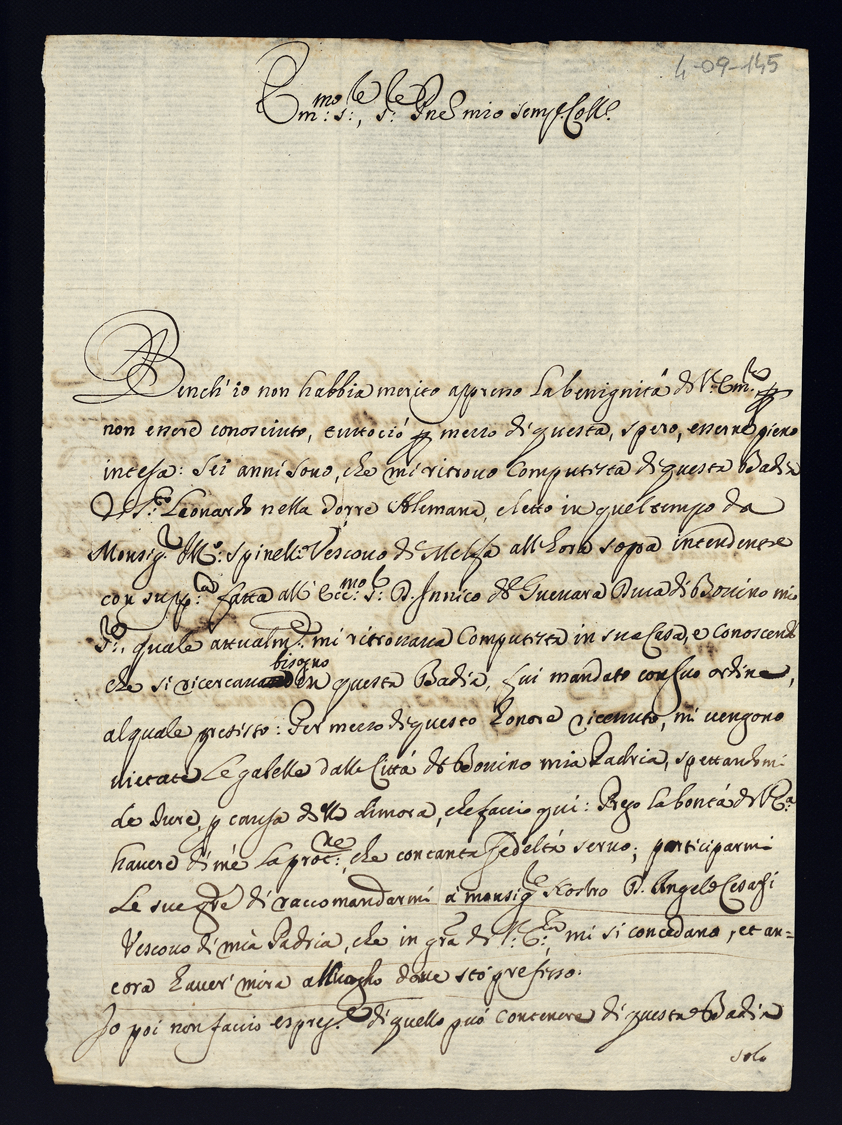 4-09-145
Em:mo S:re, S:re Pne mio semp. Coll.
Bench' io non habbia merito appresso la benignità di V. Em:za p
non essere conosciuto, tuttociò p mezzo di questa, spero, esserne pieno
intesa: Sei anni sono, che mi ritrovo Computista di questa Badia
di S:to Leonardo nella Torre Alemana, eletto in quel tempo da
Monsig:r M:o: Spinelli Vescovo di Melfa all'hora sopra intendente
con supp:ca fatta all' Ecc:mo S:re D. Innico de Guevara Duca di Bovino mio
S:re, quale attualm:te mi ritrovava Computista in sua Casa, e conoscendo
bisogno
che si ricercava in questa Badia, fui mandato con suo ordine,
al quale Per mezzo di questo honore ricevuto, mi vengono
vietate le gabelle dalla Città di Bovino mia Padria, spettandomi
de Jure, p causa della dimora, che faccio qui: Prego la bontà di V. E:a
havere di me la prot:ne, che con tanta fedeltà servo; participarmi
le sue gre di raccomandarmi à monsig:re Nostro D. Angelo Cesarfi
Vescovo di mia Padria, che in gra di V. E:za, mi si concedano, et an=
cora haver' mira al luogho dove stò presisso:
Io poi non faccio espress:e di quello può contenere di questa Badia
solo